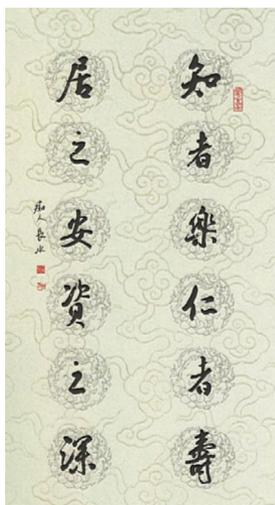 知者樂仁者壽
居之安資之深